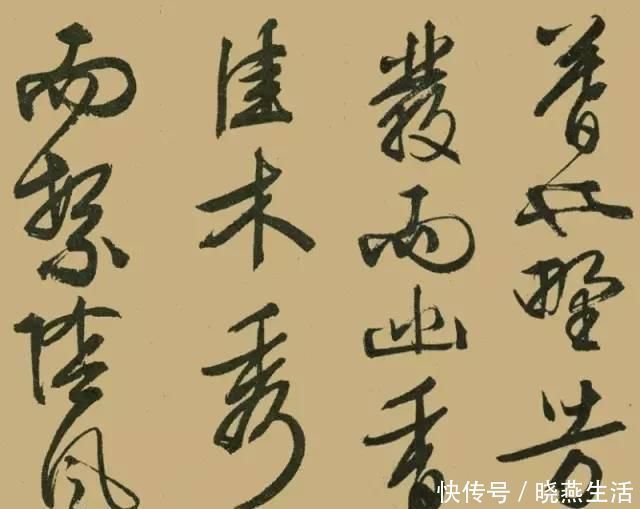 暮也野芳
發而幽香
佳木秀
而繁陰風
快传号 / 晓燕生活